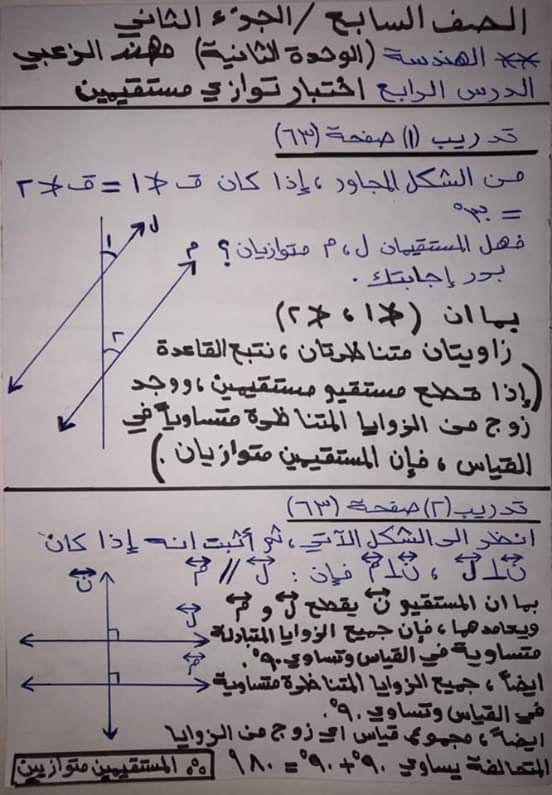 الصف السابع / الجزء الثاني
** الهندسة (الوحدة الثانية) مهند الزعبي
الدرس الرابع اختبار توازي مستقيمين
تدريب (١) صفحة (٦٣)
من الشكل المجاور ، إذا كان ق∢١ = ق∢٢
= ٣٠°
فهل المستقيمان ل ، م متوازيان ؟
برر إجابتك .
بما ان (∢١ ، ∢٢)
زاويتان متناظرتان ، نتبع القاعدة
(إذا قطع مستقيم مستقيمين ، ووجد
زوج من الزوايا المتناظرة متساوياً في
القياس ، فإن المستقيمين متوازيان .)
ل
م
١
٢
تدريب (٢) صفحة (٦٣)
انظر الى الشكل الآتي ، ثم أثبت انه إذا كان
ن ⊥ ل ، ن ⊥ م فإن : ل // م
بما ان المستقيم ن يقطع ل و م
ويعامدهما ، فإن جميع الزوايا المتبادلة
متساوية في القياس وتساوي ٩٠°.
ايضاً ، جميع الزوايا المتناظرة متساوية
في القياس وتساوي ٩٠°.
ايضاً ، مجموع قياس اي زوج من الزوايا
المتحالفة يساوي ٩٠° + ٩٠° = ١٨٠°
∴ المستقيمين متوازيين
ن
ل
م